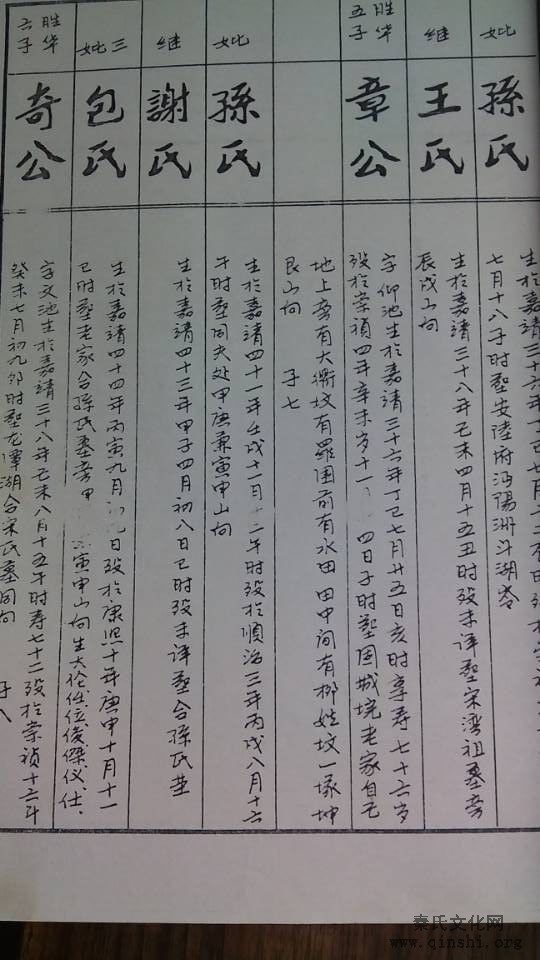 妣
孫氏
生於嘉靖三十六年丁巳七月二
七月十八子时塟安陸府沔陽洲斗湖岺
继
王氏
生於嘉靖三十八年乙未四月十五丑时殁未详塟宋湾祖墓旁
辰戌山向
胜华五子
章公
字仰池生於嘉靖三十六年丁巳七月廿五日亥时享寿七十六岁
殁於崇祯四年辛未岁十 四日子时塟围城垸老家自己
地上旁有大衢坟有羅围前有水田田中间有柳姓坟一塚坤
艮山向 子七
妣
孫氏
生於嘉靖四十一年壬戌十一月十二午时殁於順治三年丙戌八月十六
午时塟同夫处甲庚兼寅申山向
继
謝氏
生於嘉靖四十三年甲子四月初八日巳时殁未详塟合孫氏茔
三妣
包氏
生於嘉靖四十四年丙寅九月 日殁於康熙十年庚申十月十一
巳时塟老家合孫氏墓旁甲 寅申山向生大伦任位俊傑仪仕
胜华六子
奇公
字文池生於嘉靖三十八年乙未八月十五午时寿七十二殁於崇祯十六年
癸未七月初九卯时塟龙潭湖合宋氏墓同向 子八
秦氏文化网
www.qinshi.org